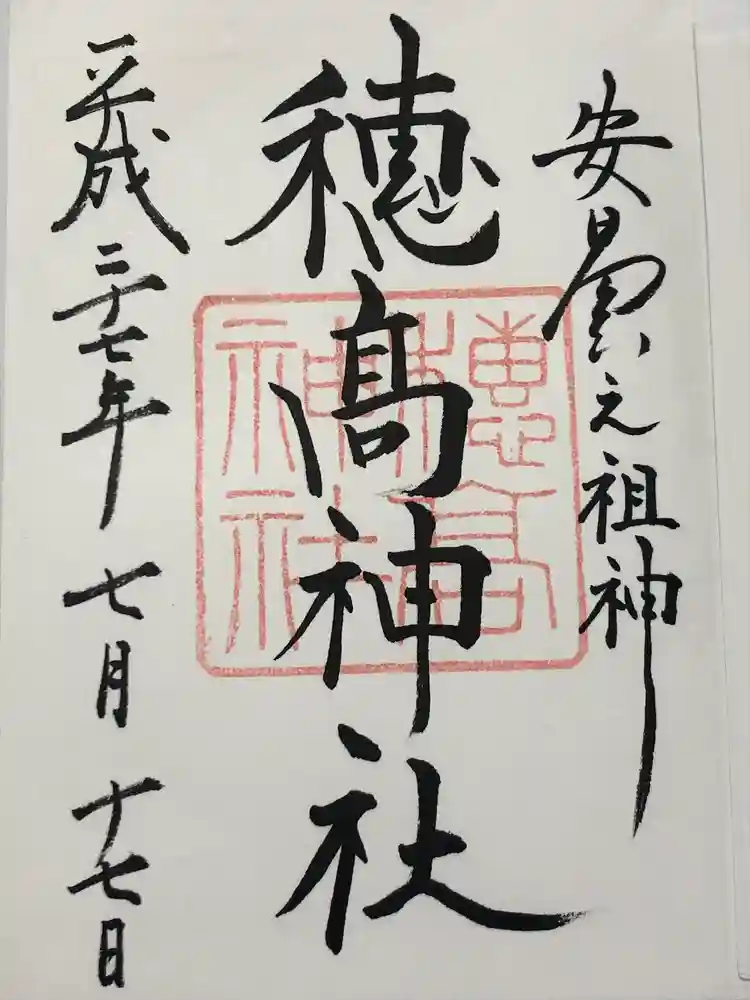 安曇之祖神
穂髙神社
穂高神社
平成二十七年 七月 十七日